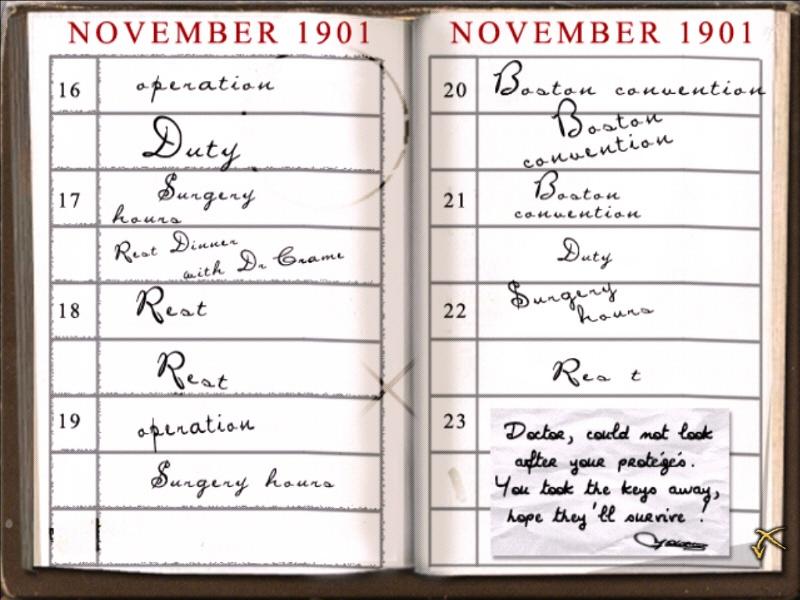 NOVEMBER 1901
16 operation
Duty
17 Surgery
hours
Rest Dinner
with Dr Crame
18 Rest
Rest
19 operation
Surgery hours
NOVEMBER 1901
20 Boston convention
Boston
convention
21 Boston
convention
Duty
22 Surgery
hours
Rest
23
Doctor, could not look
after your protégés.
You took the keys away,
hope they'll survive !